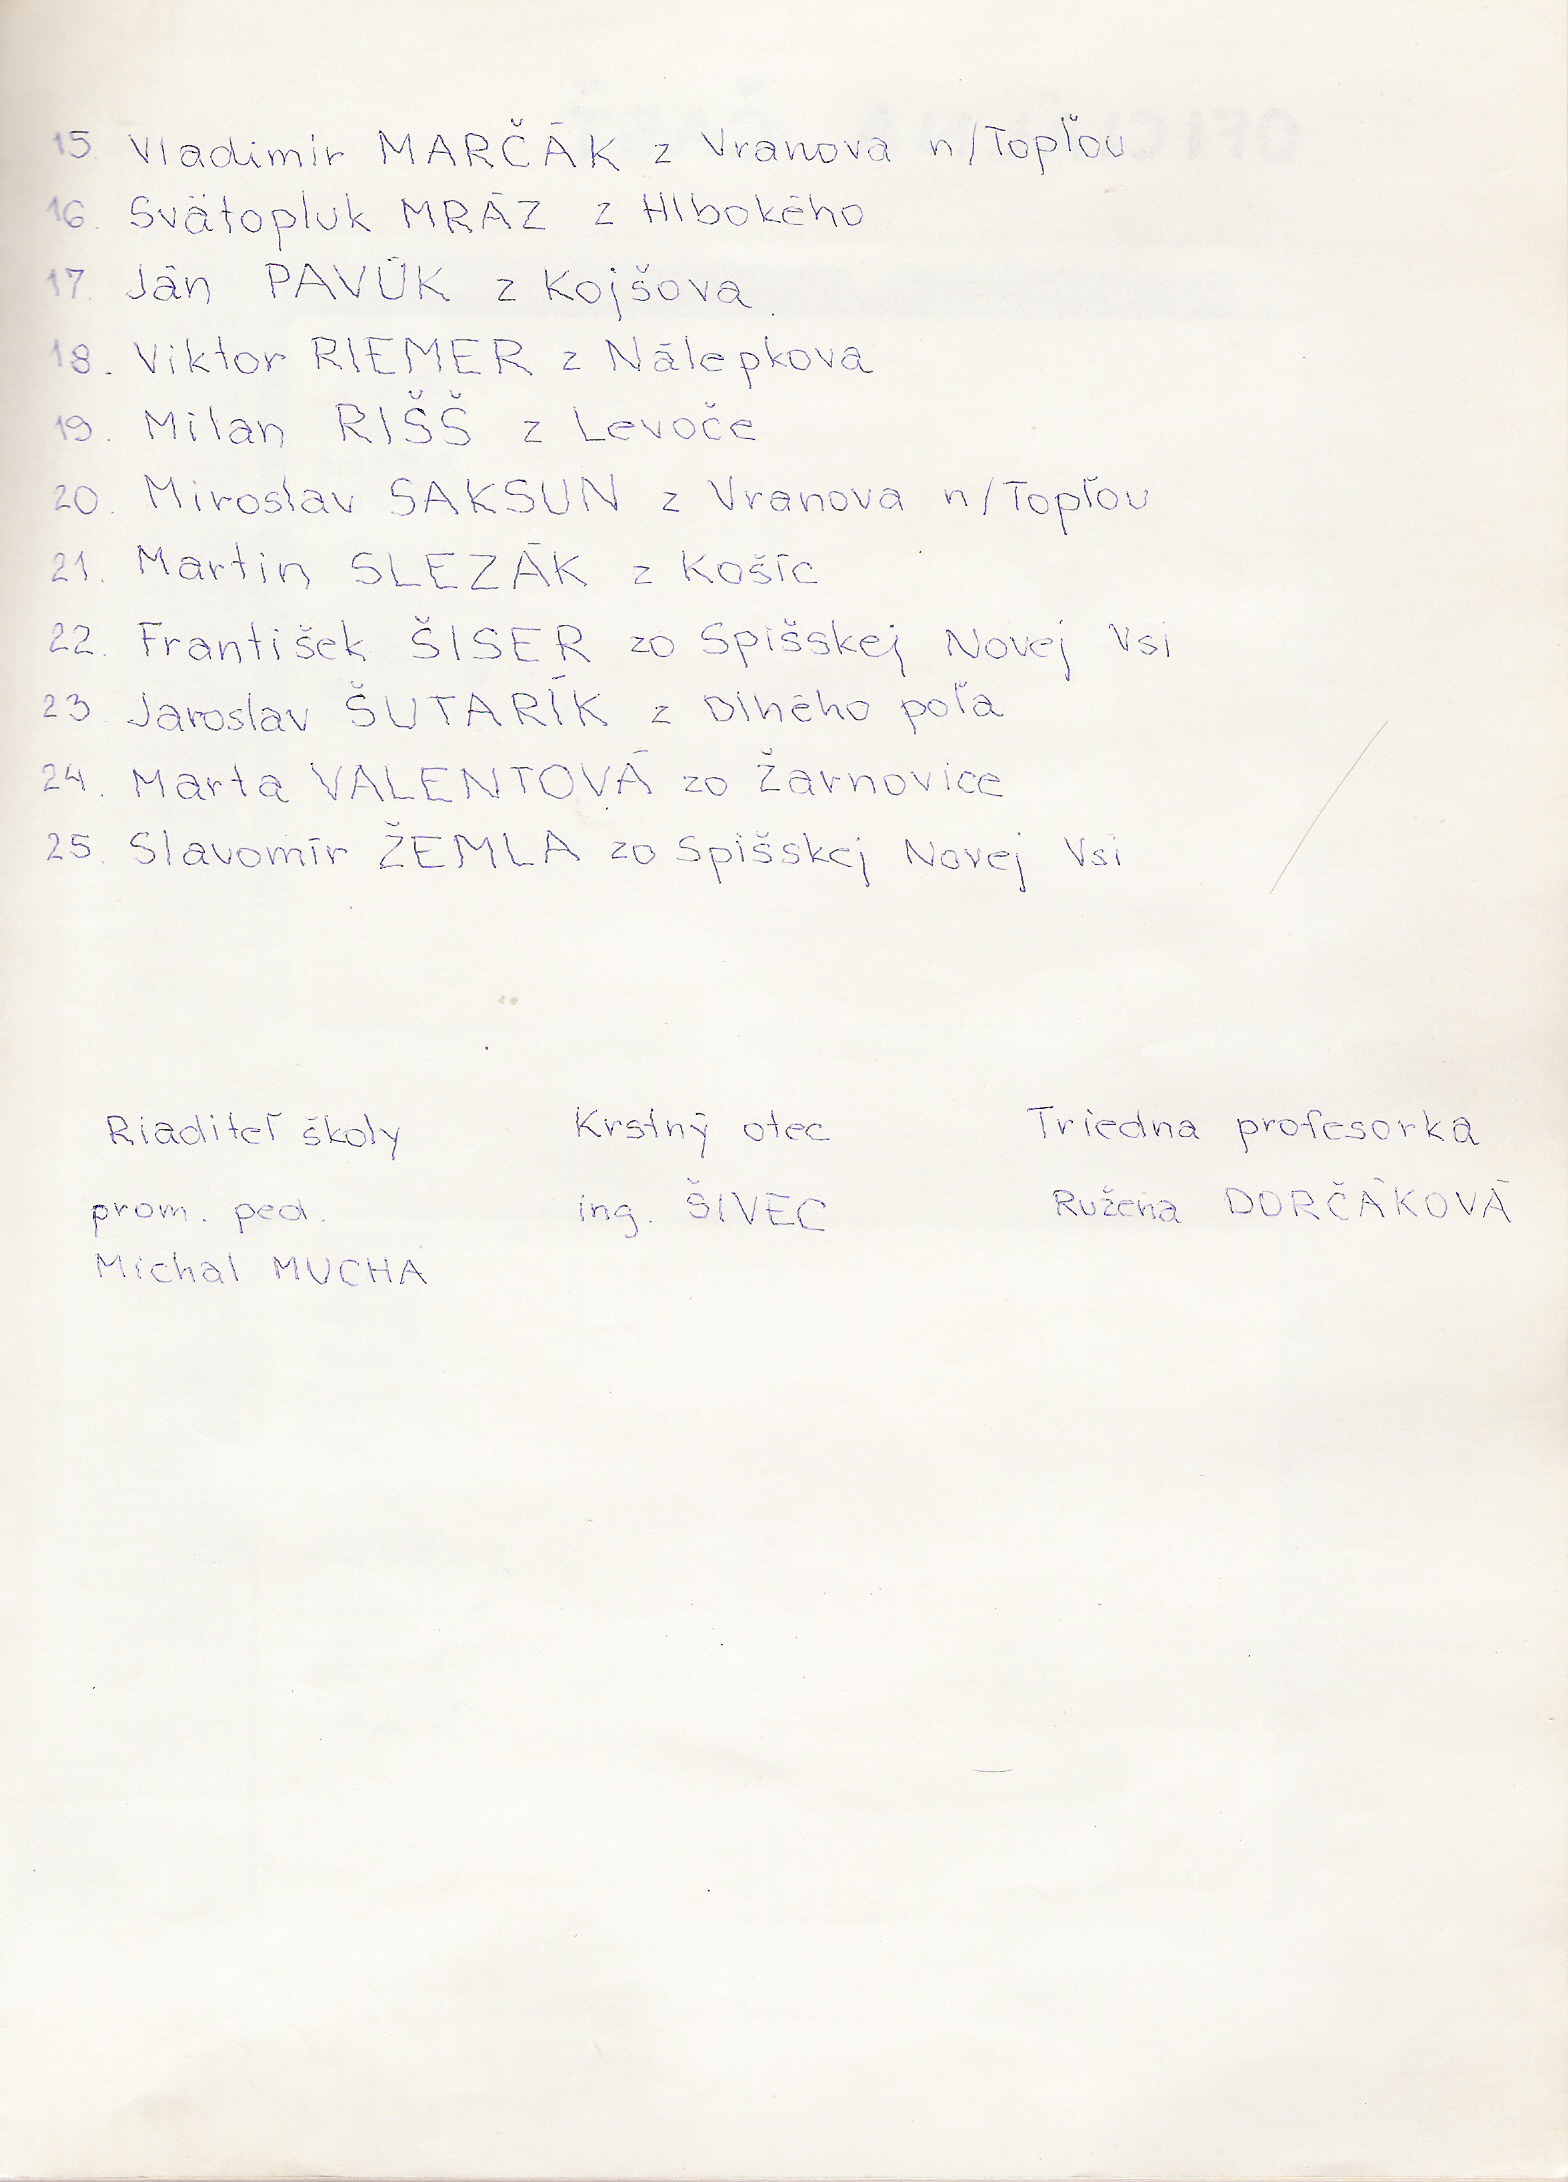 15. Vladimír MARČÁK z Vranova n/Topľou
16. Svätopluk MRÁZ z Hlbokého
17. Ján PAVÚK z Kojšova
18. Viktor RIEMER z Nálepkova
19. Milan RIŠŠ z Levoče
20. Miroslav SAKSUN z Vranova n/Topľou
21. Martin SLEZÁK z Košíc
22. František ŠISER zo Spišskej Novej Vsi
23 Jaroslav ŠUTARÍK z Dlhého poľa
24. Marta VALENTOVÁ zo Žarnovice
25. Slavomír ŽEMLA zo Spišskej Novej Vsi
Riaditeľ školy Krstný otec Triedna profesorka
prom. ped. ing. ŠIVEC Ružena DORČÁKOVÁ
Michal MUCHA